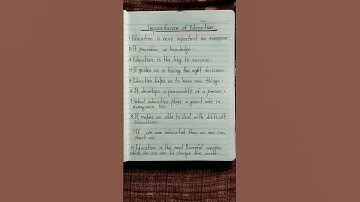 Importance of Education
1. Education is very important for everyone.
2. It provides us knowledge.
3. Education is the key to success.
4. It guides us in taking the right decisions.
5. Education helps us to learn new things.
6. It develops a personality of a person.
7. School education plays a great role in
everyone's life.
8. It makes us able to deal with difficult
situations.
9. If we are educated then no one can
cheat us.
10. Education is the most powerful weapon
which you can use to change the world.